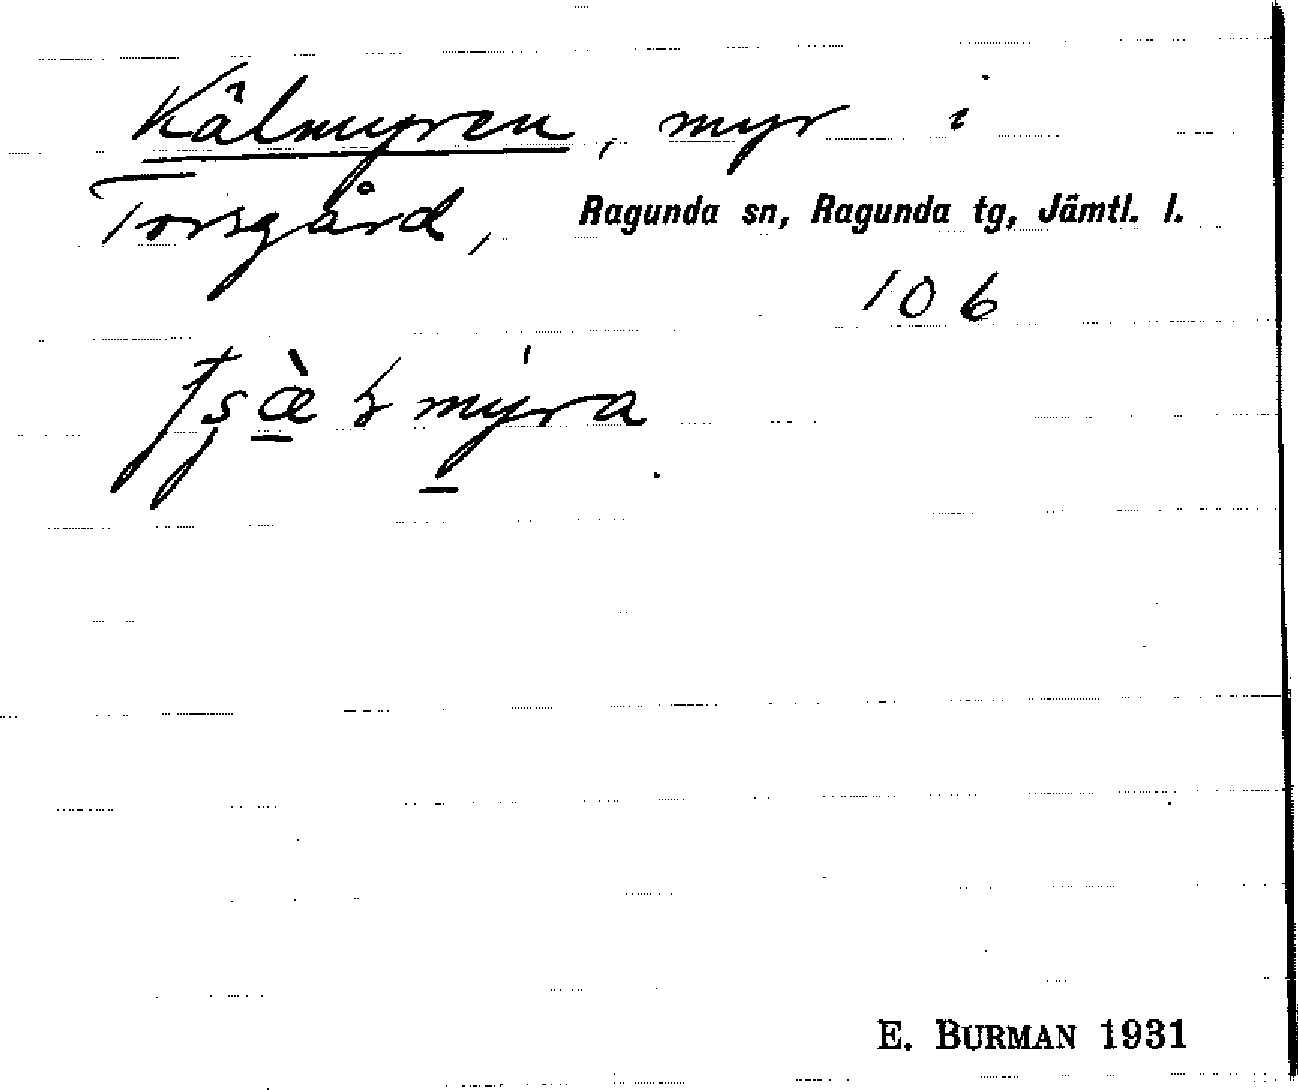 Kälmyren, myr i
Torsgård, Ragunda sn, Ragunda tg, Jämtl. l.
106
E. BURMAN 1931